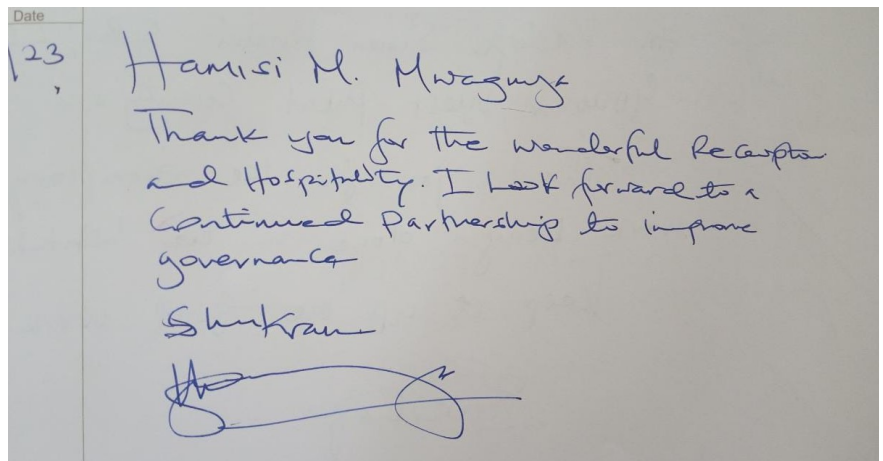 Date
/23
Hamisi M. Mwagunya
Thank you for the wonderful Reception
and Hospitality. I Look forward to a
Continued Partnership to improve
governance
Shukran